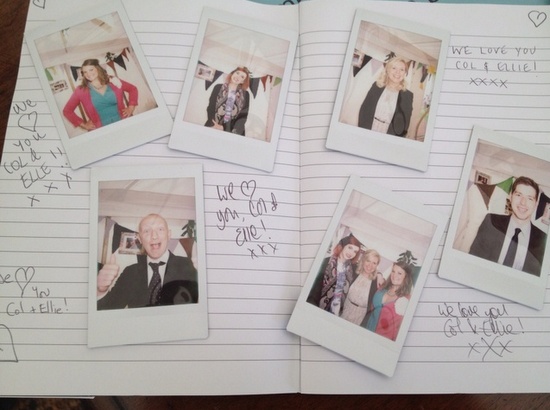 We
♡
you
COL &
ELLIE !!
x x x
♡
You
Col + Ellie!
We ♡
you, Col &
Ellie!
xxx
WE LOVE YOU
COL & ELLIE!
xxxx
We love you
Col & Ellie!
xxx